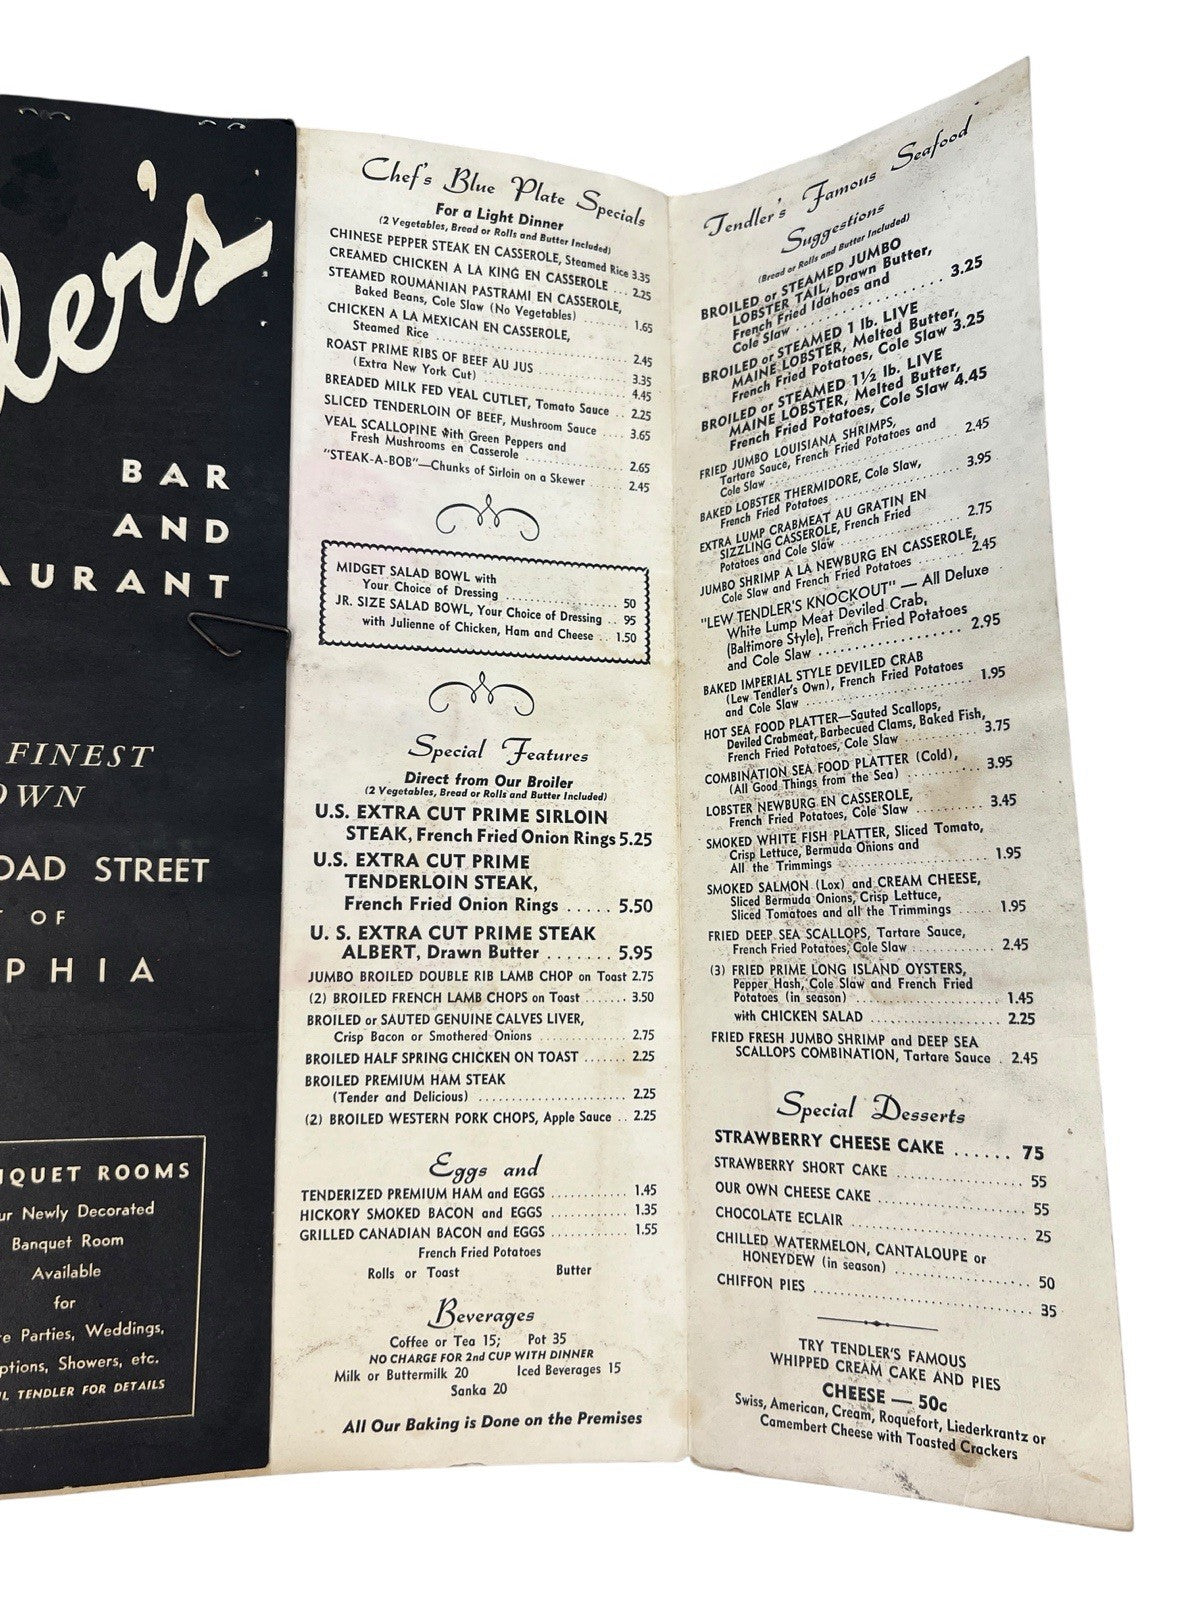 ler's
BAR
AND
AURANT
FINEST
OWN
OAD STREET
OF
PHIA
QUET ROOMS
ur Newly Decorated
Banquet Room
Available
for
e Parties, Weddings,
ptions, Showers, etc.
L TENDLER FOR DETAILS
Chef's Blue Plate Specials
For a Light Dinner
(2 Vegetables, Bread or Rolls and Butter Included)
CHINESE PEPPER STEAK EN CASSEROLE, Steamed Rice 3.35
CREAMED CHICKEN A LA KING EN CASSEROLE ... 2.25
STEAMED ROUMANIAN PASTRAMI EN CASSEROLE,
Baked Beans, Cole Slaw (No Vegetables) ........ 1.65
CHICKEN A LA MEXICAN EN CASSEROLE,
Steamed Rice ........ 2.45
ROAST PRIME RIBS OF BEEF AU JUS ........ 3.35
(Extra New York Cut) ........ 4.45
BREADED MILK FED VEAL CUTLET, Tomato Sauce .. 2.25
SLICED TENDERLOIN OF BEEF, Mushroom Sauce .... 3.65
VEAL SCALLOPINE with Green Peppers and
Fresh Mushrooms en Casserole ........ 2.65
"STEAK-A-BOB"—Chunks of Sirloin on a Skewer .... 2.45
MIDGET SALAD BOWL with
Your Choice of Dressing ........ 50
JR. SIZE SALAD BOWL, Your Choice of Dressing .. 95
with Julienne of Chicken, Ham and Cheese .. 1.50
Special Features
Direct from Our Broiler
(2 Vegetables, Bread or Rolls and Butter Included)
U.S. EXTRA CUT PRIME SIRLOIN
STEAK, French Fried Onion Rings 5.25
U.S. EXTRA CUT PRIME
TENDERLOIN STEAK,
French Fried Onion Rings ..... 5.50
U. S. EXTRA CUT PRIME STEAK
ALBERT, Drawn Butter ....... 5.95
JUMBO BROILED DOUBLE RIB LAMB CHOP on Toast 2.75
(2) BROILED FRENCH LAMB CHOPS on Toast ....... 3.50
BROILED or SAUTED GENUINE CALVES LIVER,
Crisp Bacon or Smothered Onions ........ 2.75
BROILED HALF SPRING CHICKEN ON TOAST ...... 2.25
BROILED PREMIUM HAM STEAK
(Tender and Delicious) ........ 2.25
(2) BROILED WESTERN PORK CHOPS, Apple Sauce .. 2.25
Eggs and
TENDERIZED PREMIUM HAM and EGGS ........... 1.45
HICKORY SMOKED BACON and EGGS ........... 1.35
GRILLED CANADIAN BACON and EGGS ........... 1.55
French Fried Potatoes
Rolls or Toast Butter
Beverages
Coffee or Tea 15; Pot 35
NO CHARGE FOR 2nd CUP WITH DINNER
Milk or Buttermilk 20 Iced Beverages 15
Sanka 20
All Our Baking is Done on the Premises
Tendler's Famous Seafood
Suggestions
(Bread or Rolls and Butter Included)
BROILED or STEAMED JUMBO
LOBSTER TAIL, Drawn Butter,
French Fried Idahoes and
Cole Slaw ........ 3.25
BROILED or STEAMED 1 lb. LIVE
MAINE LOBSTER, Melted Butter,
French Fried Potatoes, Cole Slaw 3.25
BROILED or STEAMED 1½ lb. LIVE
MAINE LOBSTER, Melted Butter,
French Fried Potatoes, Cole Slaw 4.45
FRIED JUMBO LOUISIANA SHRIMPS,
Tartare Sauce, French Fried Potatoes and
Cole Slaw ........ 2.45
BAKED LOBSTER THERMIDORE, Cole Slaw,
French Fried Potatoes ........ 3.95
EXTRA LUMP CRABMEAT AU GRATIN EN
SIZZLING CASSEROLE, French Fried
Potatoes and Cole Slaw ........ 2.75
JUMBO SHRIMP A LA NEWBURG EN CASSEROLE,
Cole Slaw and French Fried Potatoes ........ 2.45
"LEW TENDLER'S KNOCKOUT" — All Deluxe
White Lump Meat Deviled Crab,
(Baltimore Style), French Fried Potatoes
and Cole Slaw ........ 2.95
BAKED IMPERIAL STYLE DEVILED CRAB
(Lew Tendler's Own), French Fried Potatoes
and Cole Slaw ........ 1.95
HOT SEA FOOD PLATTER—Sauted Scallops,
Deviled Crabmeat, Barbecued Clams, Baked Fish,
French Fried Potatoes, Cole Slaw ........ 3.75
COMBINATION SEA FOOD PLATTER (Cold),
(All Good Things from the Sea) ........ 3.95
LOBSTER NEWBURG EN CASSEROLE,
French Fried Potatoes, Cole Slaw ........ 3.45
SMOKED WHITE FISH PLATTER, Sliced Tomato,
Crisp Lettuce, Bermuda Onions and
All the Trimmings ........ 1.95
SMOKED SALMON (Lox) and CREAM CHEESE,
Sliced Bermuda Onions, Crisp Lettuce,
Sliced Tomatoes and all the Trimmings ..... 1.95
FRIED DEEP SEA SCALLOPS, Tartare Sauce,
French Fried Potatoes, Cole Slaw ........ 2.45
(3) FRIED PRIME LONG ISLAND OYSTERS,
Pepper Hash, Cole Slaw and French Fried
Potatoes (in season) ........ 1.45
with CHICKEN SALAD ........ 2.25
FRIED FRESH JUMBO SHRIMP and DEEP SEA
SCALLOPS COMBINATION, Tartare Sauce . 2.45
Special Desserts
STRAWBERRY CHEESE CAKE ...... 75
STRAWBERRY SHORT CAKE ........ 55
OUR OWN CHEESE CAKE ........ 55
CHOCOLATE ECLAIR ........ 25
CHILLED WATERMELON, CANTALOUPE or
HONEYDEW (in season) ........ 50
CHIFFON PIES ........ 35
TRY TENDLER'S FAMOUS
WHIPPED CREAM CAKE AND PIES
CHEESE — 50c
Swiss, American, Cream, Roquefort, Liederkrantz or
Camembert Cheese with Toasted Crackers